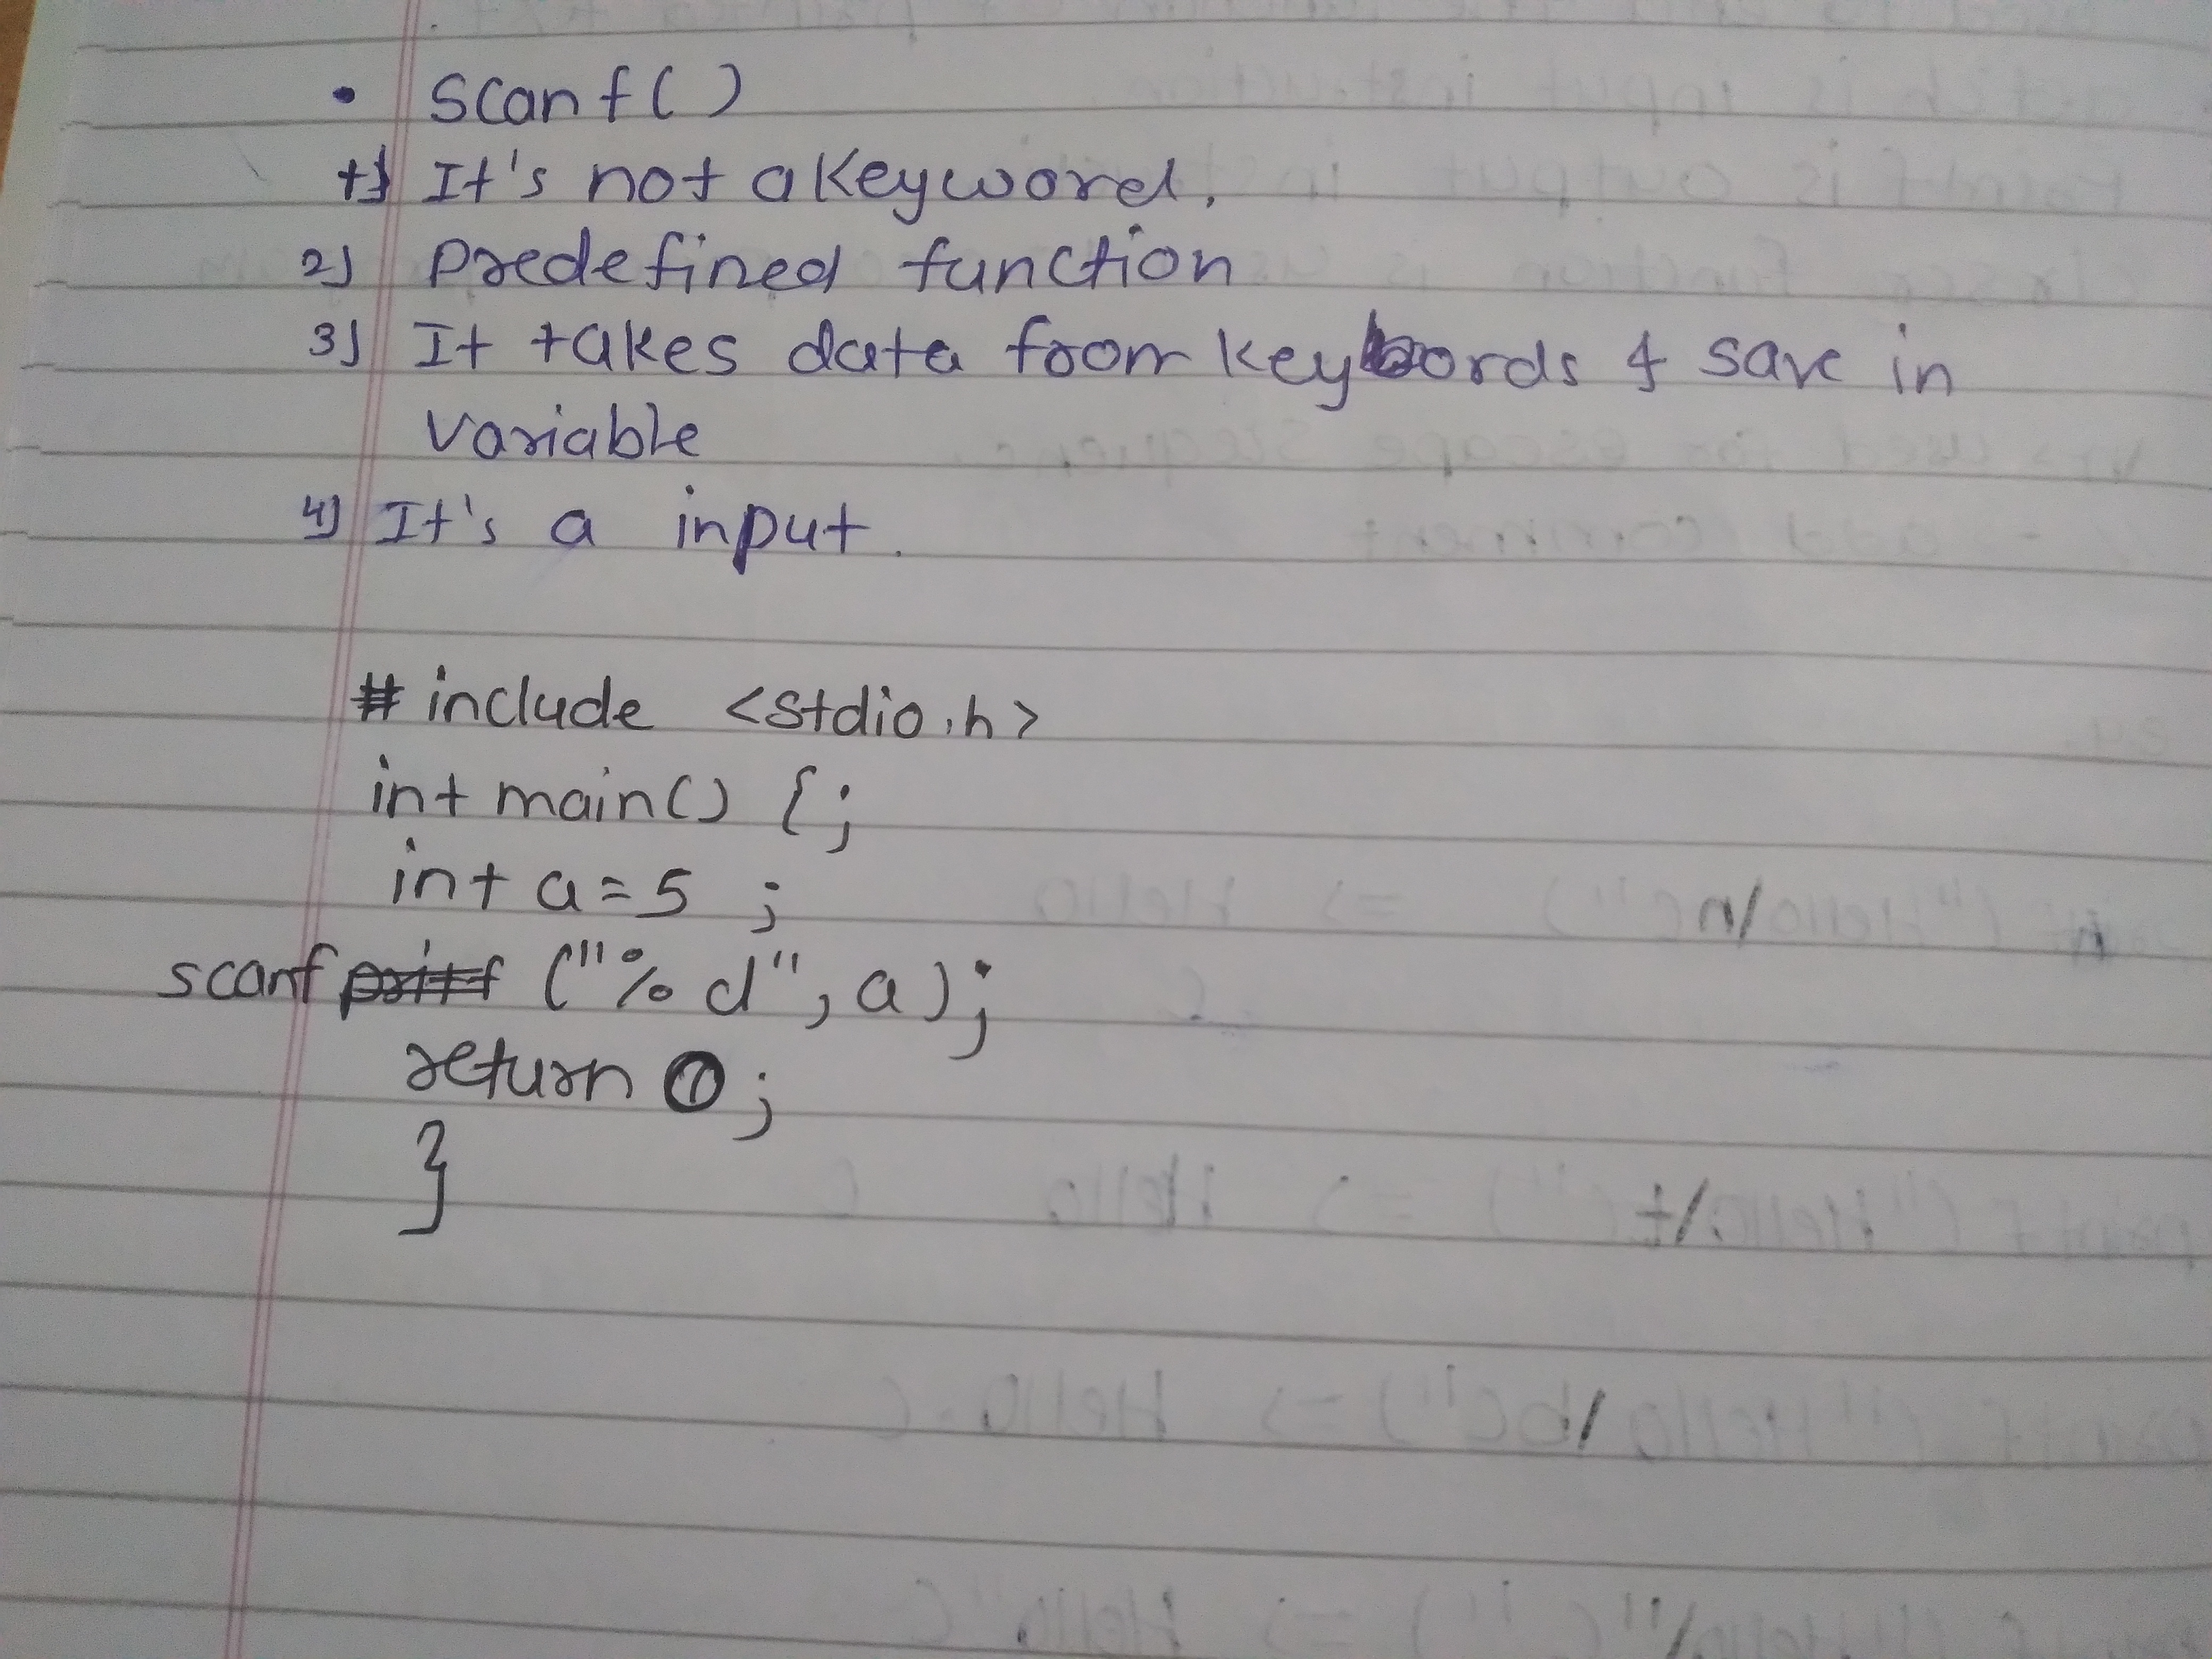 • scanf()
1) It's not a Keyword.
2) predefined function
3) It takes data from keybords & save in
variable
4) It's a input.
# include <stdio.h>
int main() {;
int a=5 ;
scanf ("%d", a);
return 0;
}